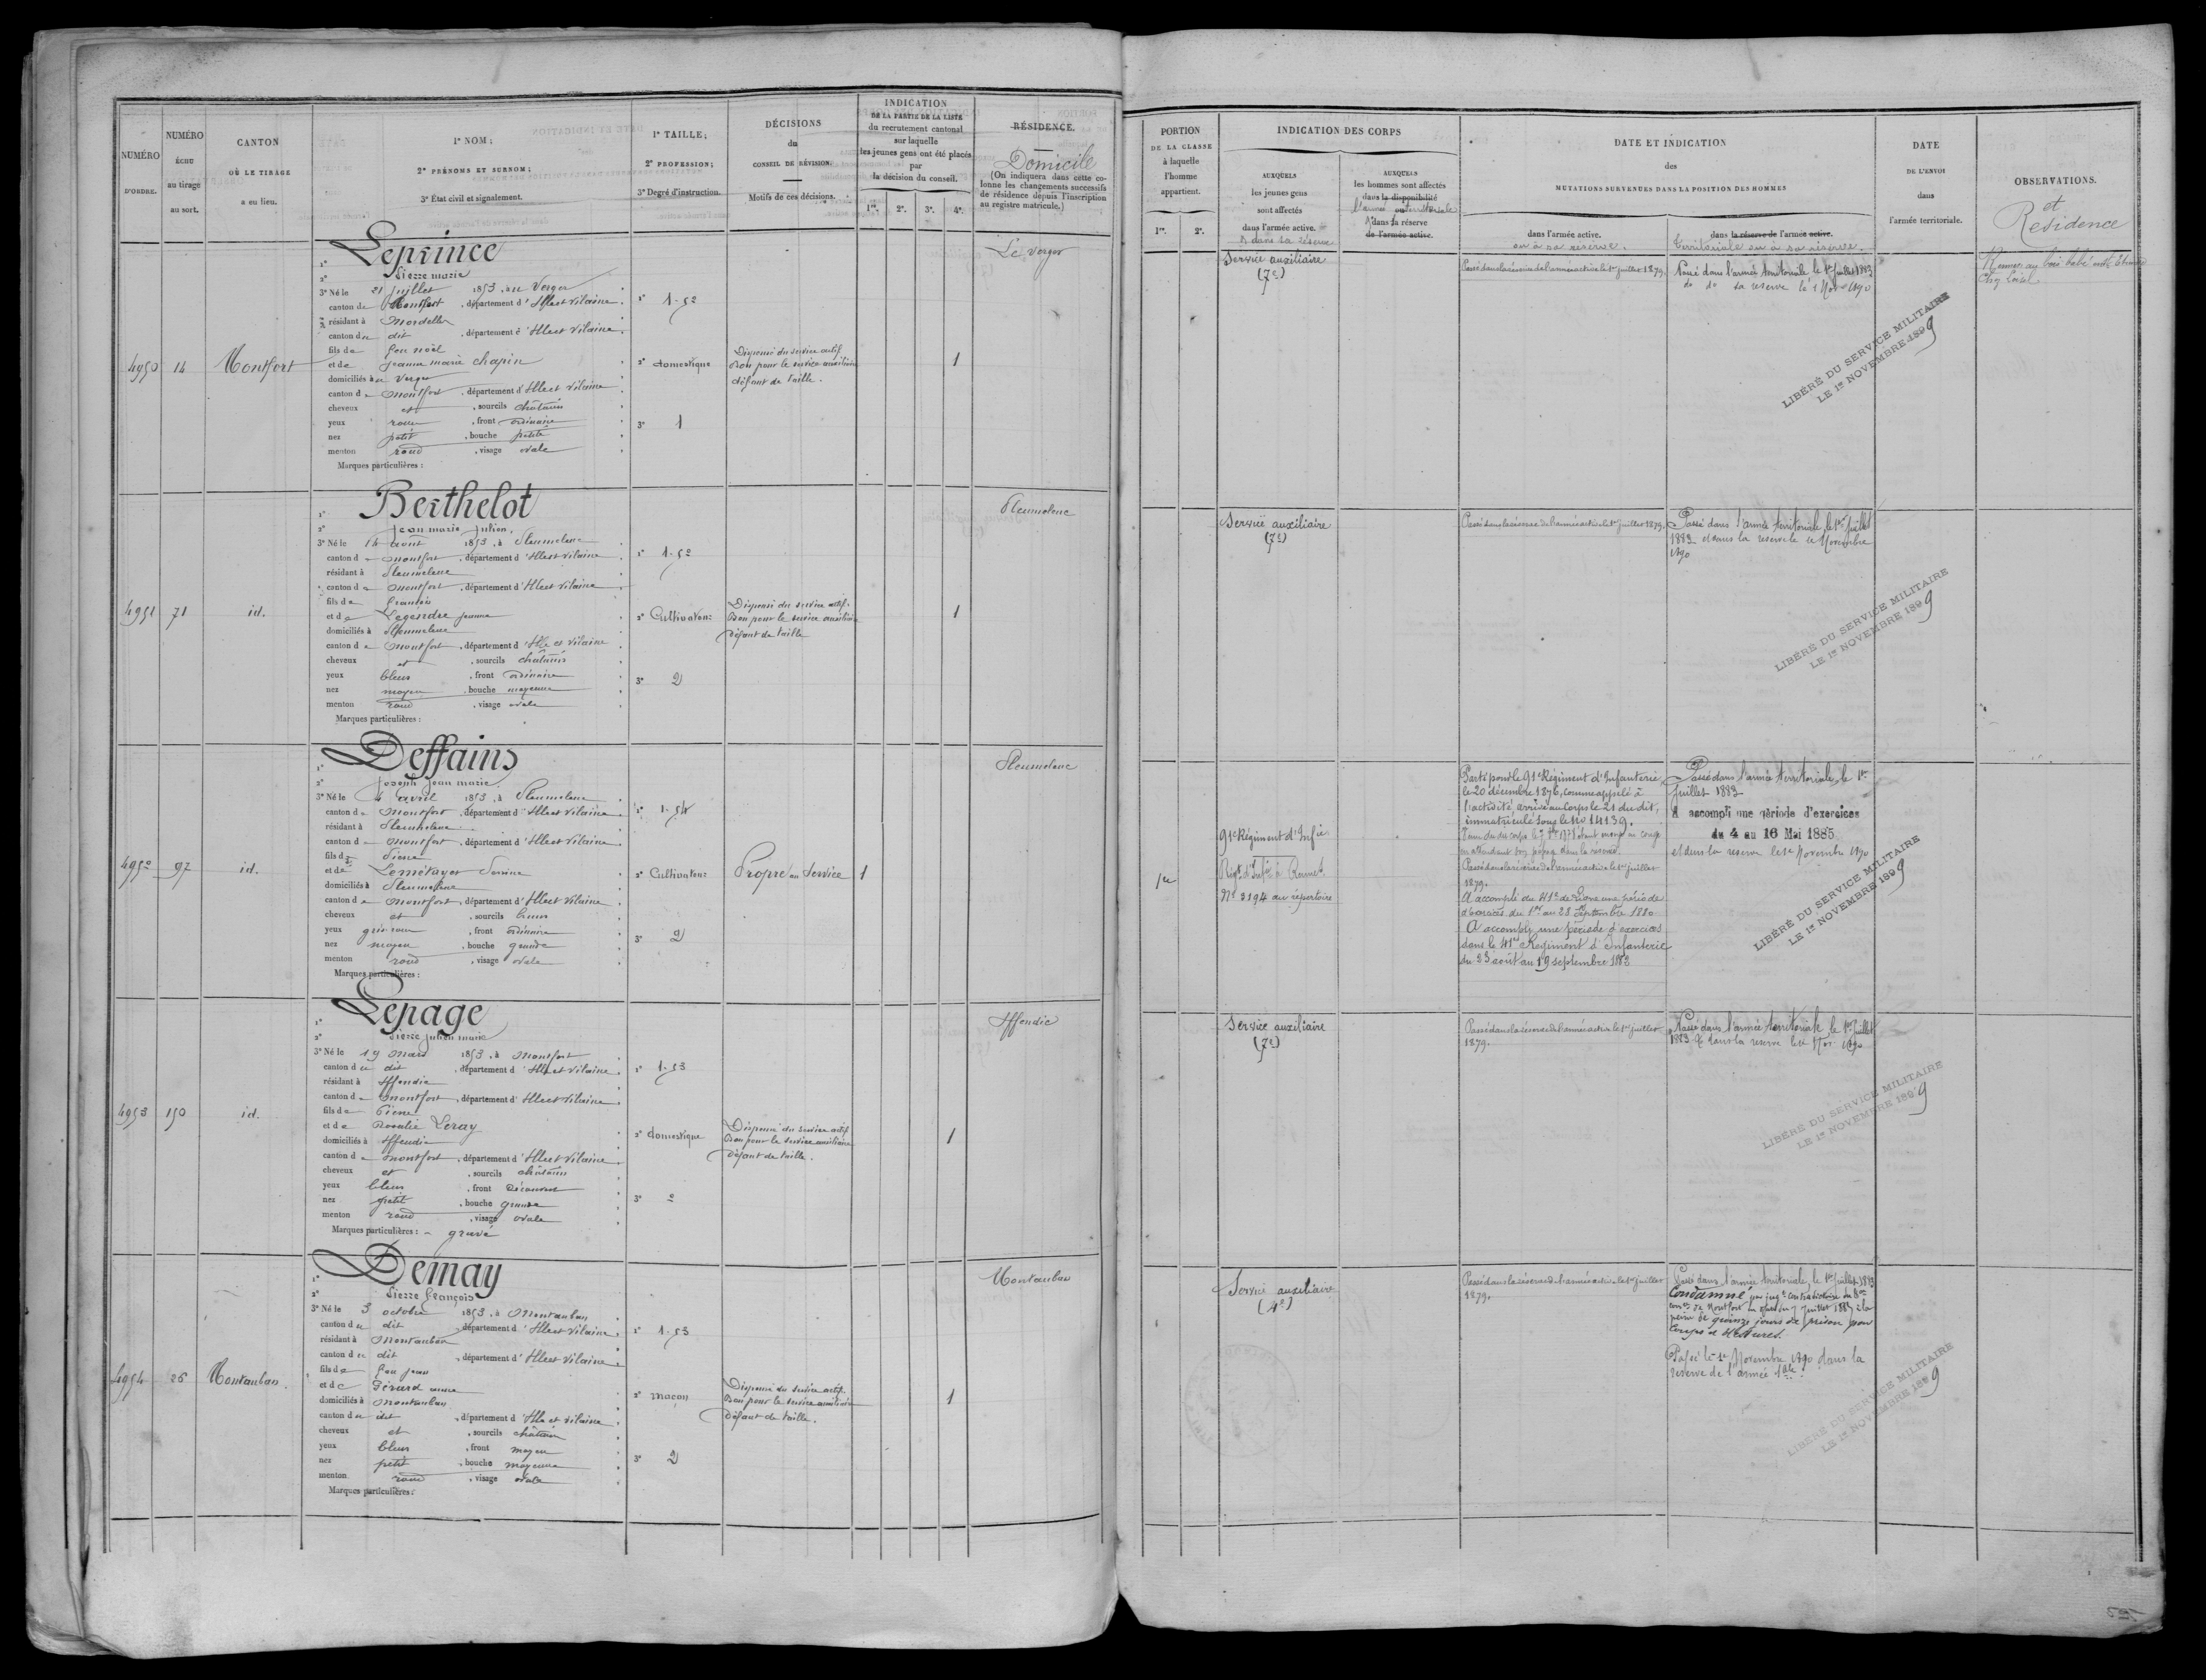 NUMÉRO
D'ORDRE.
NUMÉRO
ÉCHU
au tirage
au sort.
CANTON
OÙ LE TIRAGE
a eu lieu.
1º NOM ;
2º PRÉNOMS ET SURNOM ;
3º État civil et signalement.
1º TAILLE ;
2º PROFESSION ;
3º Degré d'instruction.
DÉCISIONS
du
CONSEIL DE RÉVISION.
Motifs de ces décisions.
INDICATION
DE LA PARTIE DE LA LISTE
du recrutement cantonal
sur laquelle
les jeunes gens ont été placés
par
la décision du conseil.
1re. 2e. 3e. 4e.
RÉSIDENCE.
Domicile
(On indiquera dans cette co-
lonne les changements successifs
de résidence depuis l'inscription
au registre matricule.)
PORTION
DE LA CLASSE
à laquelle
l'homme
appartient.
1re. 2e.
INDICATION DES CORPS
AUXQUELS
les jeunes gens
sont affectés
dans l'armée active.
& dans sa réserve
AUXQUELS
les hommes sont affectés
dans la disponibilité
l'armée ou territoriale
dans sa réserve
de l'armée active.
DATE ET INDICATION
des
MUTATIONS SURVENUES DANS LA POSITION DES HOMMES
dans l'armée active.
ou à sa réserve.
dans la réserve de l'armée active.
Territoriale ou à sa réserve.
DATE
DE L'ENVOI
dans
l'armée territoriale.
OBSERVATIONS.
et
Résidence
4950 14 Montfort
1º Leprince
2º Pierre marie
3º Né le 21 juillet 1853, au Verger
canton de Montfort, département d'Ille et Vilaine.
résidant à Mordelles
canton du dit, département d'Ille et Vilaine.
fils de feu noël
et de jeanne marie chapin
domiciliés au Verger
canton de montfort, département d'Ille et Vilaine
cheveux et, sourcils châtains
yeux roux, front ordinaire
nez petit, bouche petite
menton rond, visage ovale
Marques particulières :
1º 1.52
2º domestique
3º 1
Dispensé du service actif
Bon pour le service auxiliaire
défaut de taille.
1
Le Verger
Service auxiliaire
(7e)
Passé dans la réserve de l'armée active le 1er juillet 1879.
Passé dans l'armée territoriale le 1er juillet 1883
do do sa reserve le 1 Novre 1890
LIBÉRÉ DU SERVICE MILITAIRE
LE 1er NOVEMBRE 1899
Rennes, au
4951 71 id.
1º Berthelot
2º jean marie julien.
3º Né le 14 août 1853, à Pleumeleuc
canton de montfort, département d'Ille et Vilaine
résidant à Pleumeleuc
canton de montfort, département d'Ille et Vilaine
fils de françois
et de Legendre jeanne
domiciliés à Pleumeleuc
canton de montfort, département d'Ille et Vilaine
cheveux et, sourcils châtains
yeux bleus, front ordinaire
nez moyen, bouche moyenne
menton rond, visage ovale
Marques particulières :
1º 1.52
2º Cultivateur
3º 2
Dispensé du service actif.
Bon pour le service auxiliaire
défaut de taille
1
Pleumeleuc
Service auxiliaire
(7e)
Passé dans la réserve de l'armée active le 1er juillet 1879.
Passé dans l'armée territoriale, le 1er juillet
1883 et dans la reserve le 1e Novembre
1890
LIBÉRÉ DU SERVICE MILITAIRE
LE 1er NOVEMBRE 1899
4952 97 id.
1º Deffains
2º joseph jean marie
3º Né le 4 avril 1853, à Pleumeleuc
canton de montfort, département d'Ille et Vilaine
résidant à Pleumeleuc
canton de montfort, département d'Ille et Vilaine.
fils de Pierre
et de Lemétayer Perrine
domiciliés à Pleumeleuc
canton de montfort, département d'Ille et Vilaine
cheveux et, sourcils bruns
yeux gris roux, front ordinaire
nez moyen, bouche grande
menton rond, visage ovale
Marques particulières :
1º 1.54
2º Cultivateur
3º 2
Propre au Service
1
Pleumeleuc
1re
91e Régiment d'Infie
Régt d'Infie à Rennes
No 3194 au répertoire
Parti pour le 91e Régiment d'Infanterie
le 20 décembre 1876, comme appelé à
l'activité, arrivé au Corps le 21 du dit,
immatriculé sous le No 14139.
en attendant son passage dans la réserve.
Passé dans la réserve de l'armée active le 1er juillet
1879.
A accompli au 41e de Ligne une période
d'exercices du 1er au 28 Septembre 1880
A accompli une période d'exercices
dans le 41e Régiment d'Infanterie
du 23 août au 19 septembre 1882
Passé dans l'armée territoriale, le 1er
juillet 1883
A accompli une période d'exercices
du 4 au 16 Mai 1885
et dans la reserve le 1e Novembre 1890
LIBÉRÉ DU SERVICE MILITAIRE
LE 1er NOVEMBRE 1899
4953 150 id.
1º Lepage
2º Pierre julien marie
3º Né le 19 mars 1853, à montfort
canton du dit, département d'Ille et Vilaine
résidant à Iffendic
canton de montfort, département d'Ille et Vilaine
fils de Pierre
et de Rosalie Leray
domiciliés à Iffendic
canton de montfort, département d'Ille et Vilaine
cheveux et, sourcils châtains
yeux bleus, front découvert
nez petit, bouche grande
menton rond, visage ovale
Marques particulières : gravé
1º 1.53
2º domestique
3º 0
Dispensé du service actif
Bon pour le service auxiliaire
défaut de taille.
1
Iffendic
Service auxiliaire
(7e)
Passé dans la réserve de l'armée active le 1er juillet
1879.
Passé dans l'armée territoriale le 1er juillet
1883 & dans la reserve le 1e Nov. 1890
LIBÉRÉ DU SERVICE MILITAIRE
LE 1er NOVEMBRE 1899
4954 26 Montauban
1º Demay
2º Pierre françois
3º Né le 3 octobre 1853, à Montauban
canton du dit, département d'Ille et Vilaine
résidant à Montauban
canton du dit, département d'Ille et Vilaine
fils de feu jean
et de Gérard anne
domiciliés à Montauban
canton du dit, département d'Ille et Vilaine
cheveux et, sourcils châtains
yeux bleus, front moyen
nez petit, bouche moyenne
menton rond, visage ovale
Marques particulières :
1º 1.53
2º maçon
3º 2
Dispensé du service actif.
Bon pour le service auxiliaire
défaut de taille.
1
Montauban
Service auxiliaire
(4e)
Passé dans la réserve de l'armée active le 1er juillet
1879.
Passé dans l'armée territoriale, le 1er juillet 1883
Condamné par jugt contradictoire du
de Montfort en date du 7 juillet 1887 à la
peine de quinze jours de prison pour
Coups et blessures.
Passé le 1e Novembre 1890 dans la
reserve de l'armée tale
LIBÉRÉ DU SERVICE MILITAIRE
LE 1er NOVEMBRE 1899